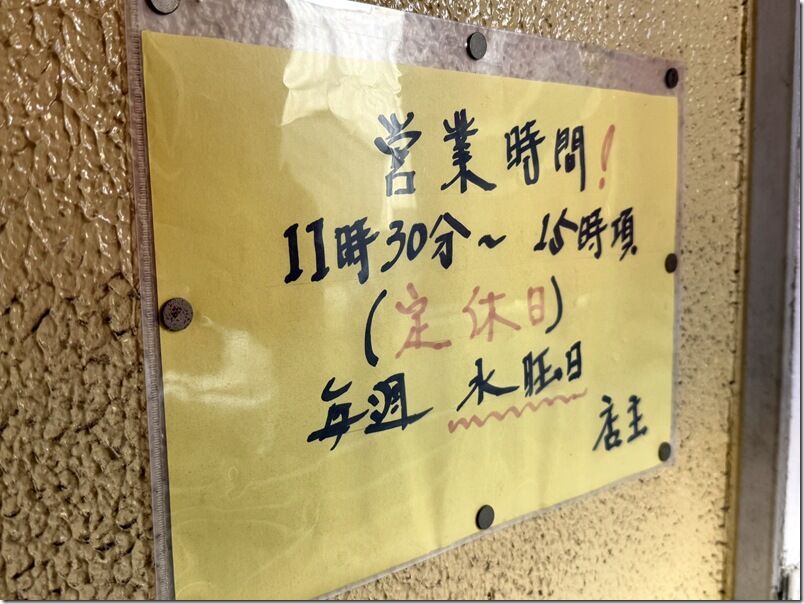 営業時間!
11時30分~15時項
(定休日)
毎週 水旺日
店主